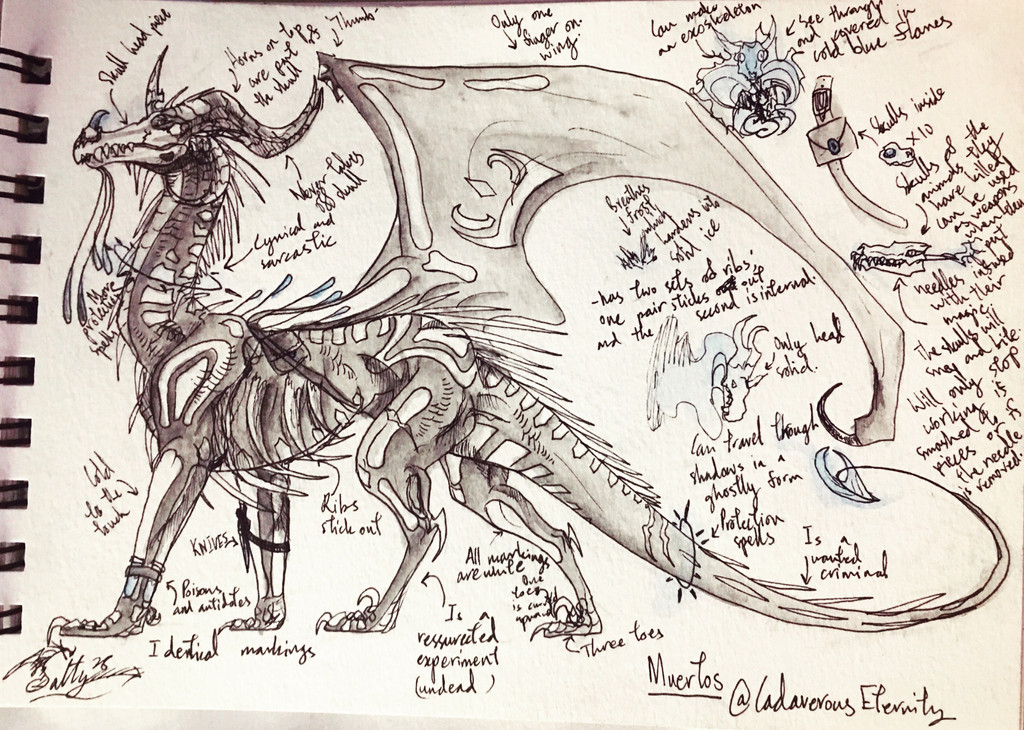 Skull head piece
Horns on top
are part of
the skull
"Thumb"
Only one
finger on
wing.
Can make
an exoskeleton
See through
and covered in
cold blue flames
Skulls inside
x10
Skulls of
animals they
have killed
can be used
as weapons
when
needles infused
with their
magic.
The skulls will
snap and bite.
Will only stop
working if
smashed to
pieces or if
the needle
is removed.
Never takes
off skull
Cynical and
sarcastic
Breathes
frost
which
hardens into
solid ice
-has two sets of ribs;
one pair sticks out
and the second is internal.
Only head
solid.
Can travel though
shadows in a
ghostly form
Protection
spells
Is a
wanted
criminal
Cold
to the
touch
KNIVES
Ribs
stick out
Poisons
and antidotes
Identical markings
All markings
are white
One
toe
is
Is a
ressurected
experiment
(undead)
Three toes
Muertos
@CadaverousEternity